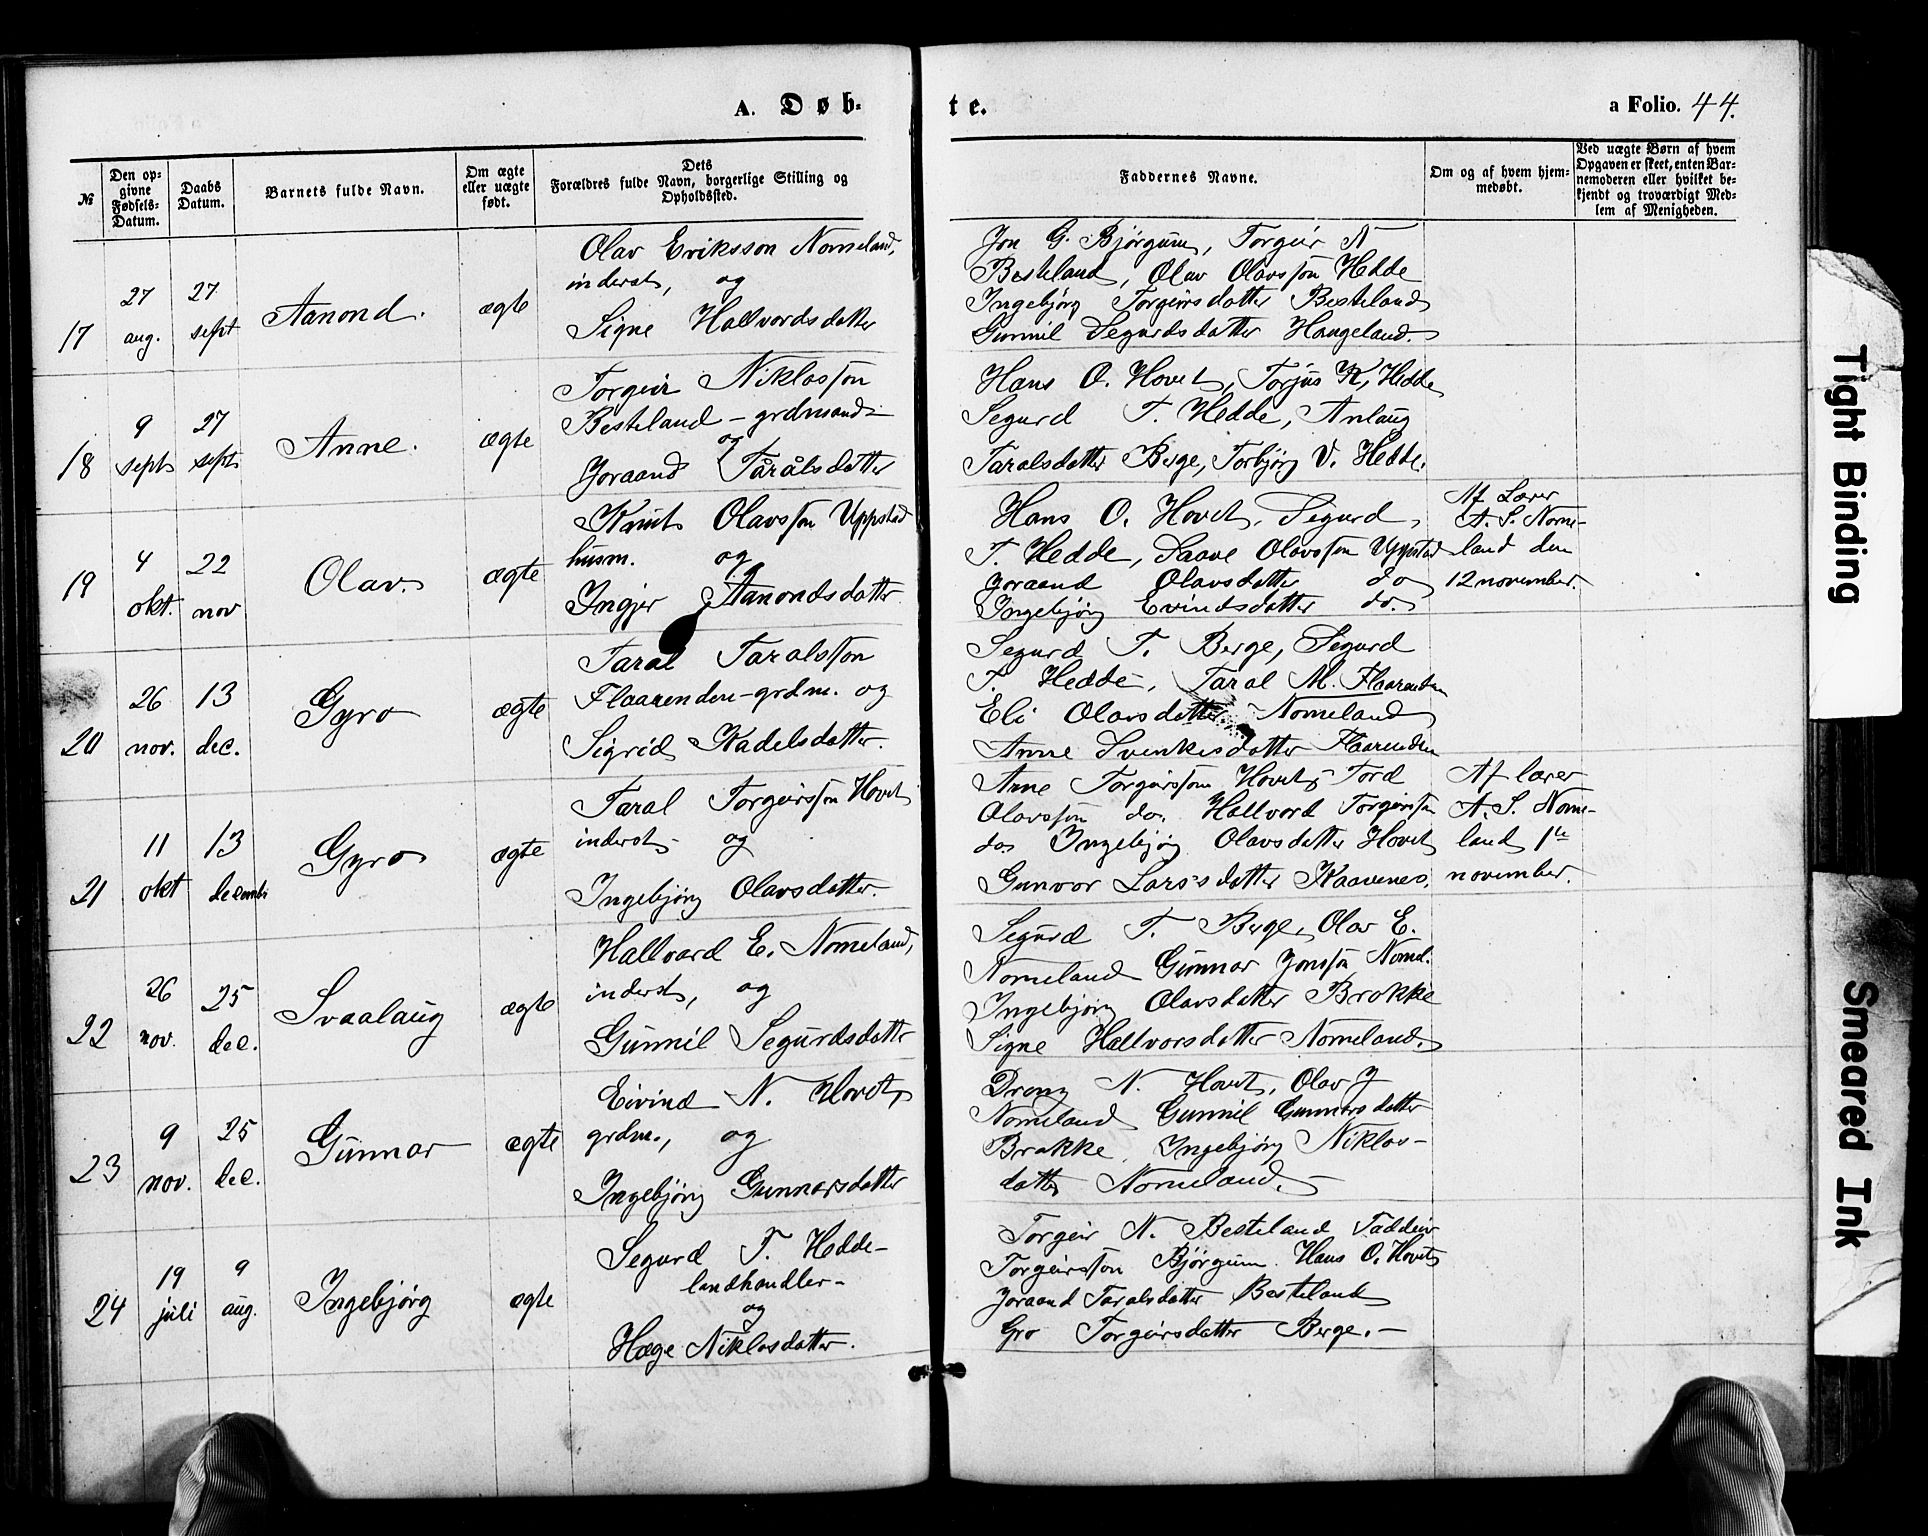 A. Døb-
te.
a Folio. 44.
№
Den op-
givne
Fødsels-
Datum.
Daabs
Datum.
Barnets fulde Navn.
Om ægte
eller uægte
født.
Dets
Forældres fulde Navn, borgerlige Stilling og
Opholdssted.
Faddernes Navne.
Om og af hvem hjem-
medøbt.
Ved uægte Børn af hvem
Opgaven er skeet, enten Bar-
nemoderen eller hvilket be-
kjendt og troværdigt Med-
lem af Menigheden.
17
27
aug.
27
sept
Aanond.
ægte
Olav Eriksson Nomeland,
inderst, og
Signe Hallvordsdatter
Jon G. Bjørgum, Torgeir N
Besteland, Olav Olavsson Hedde
Ingebjørg Torgeirsdatter Besteland
Gunnil Segurdsdatter Haugeland.
18
9
sept
27
sept
Anne.
ægte
Torgeir Niklosson
Besteland - grdmand
og
Joraand Tårålsdatter
Hans O. Hovet, Torjus K. Hedde
Segurd T. Hedde, Anlaug
Taralsdatter Berge, Torbjørg V. Hedde.
19
4
okt.
22
nov
Olav.
ægte
Knut Olavsson Uppstad
husm. og
Ingjer Aanondsdatter
Hans O. Hovet, Segurd
T. Hedde, Saave Olavsson Uppstad
Joraand Olavsdatter do
Ingebjørg Evindsdatter do.
Af Lærer
A. S. Nome-
land den
12 november.
20
26
nov.
13
dec.
Gyro
ægte
Taral Taralsson
Flaarenden - grdm. og
Sigrid Kadelsdatter.
Segurd T. Berge, Segurd
T. Hedde, Taral M. Flaarenden
Eli Olavsdatter Nomeland
Anne Svenkesdatter Flaarenden
21
11
okt
13
decemb
Gyro
ægte
Taral Torgeirsson Hovet
inderst og
Ingebjørg Olavsdatter.
Arne Torgeirsson Hovet, Tord
Olavsson do. Hallvord Torgeirsson
do Ingebjørg Olavsdatter Hovet
Gunvor Larsdatter Kaavenes.
Af lærer
A. S. Nome-
land 1te
november.
22
26
nov.
25
dec.
Svaalaug
ægte
Hallvard E. Nomeland,
inderst, og
Gunnil Segurdsdatter
Segurd T. Berge, Olav E.
Nomeland Gunnar Jonsson Nomel.
Ingebjørg Olavsdatter Brokke
Signe Hallvorsdatter Nomeland.
23
9
nov.
25
dec.
Gunnar
ægte
Eivind N. Hovet,
grdm., og
Ingebjørg Gunnarsdatter
Drong N. Hovet, Olav J
Nomeland Gunnil Gunnarsdatter
Brokke, Ingebjørg Niklos-
datter Nomeland.
24
19
juli
9
aug.
Ingebjørg
ægte
Segurd T. Hedde-
landhandler-
og
Hæge Niklosdatter.
Torgeir N. Besteland Taddeiv
Torgeirsson Bjørgum. Hans O. Hovet
Joraand Taralsdatter Besteland
Gro Torgeirsdatter Berge.
Tight Binding
Smeared Ink